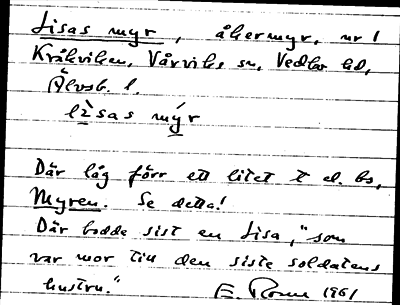 Lisas myr, åkermyr, nr 1
Kråkviken, Vårviks sn, Vedbo hd,
Älvsb. l.
lìsas mýr
Där låg förr ett litet t el. bs,
Myren. Se detta!
Där bodde sist en Lisa, "som
var mor till den siste soldatens
hustru." E. Rome 1961